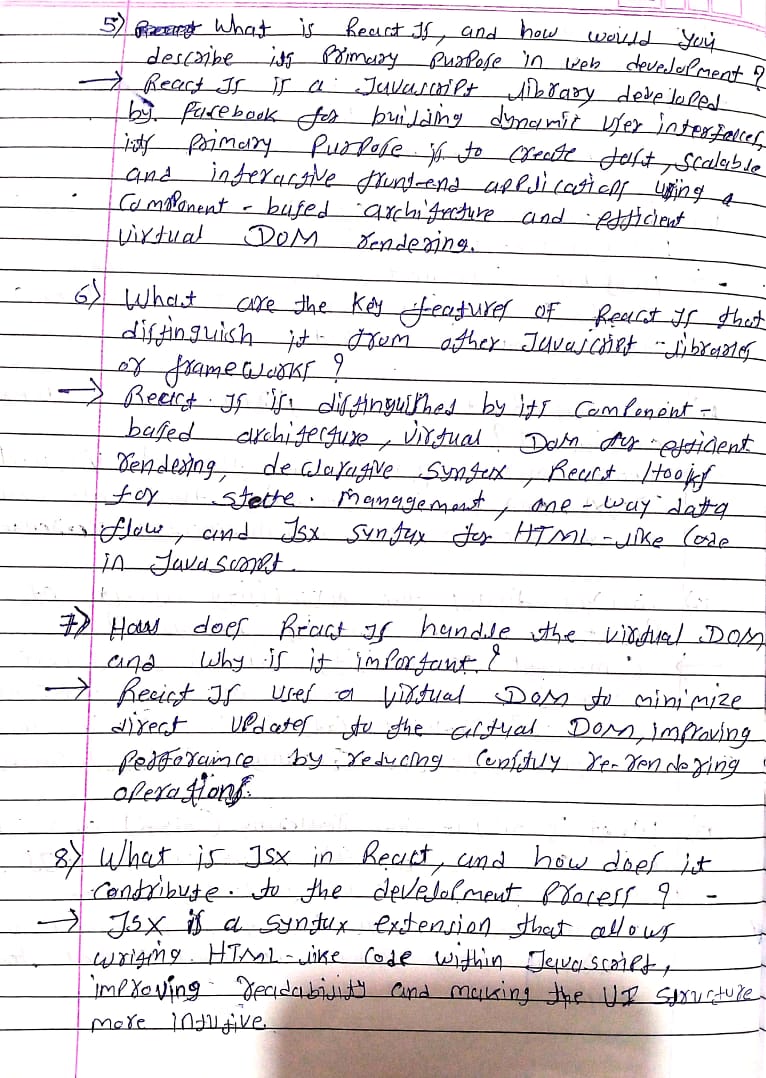 5) What is React JS, and how would you
describe its Primary Purpose in web development ?
→ React JS is a Javascript library developed
by Facebook for building dynamic user interfaces,
its Primary Purpose is to create fast, scalable
and interactive front-end applications using a
Component - based architecture and efficient
virtual DOM rendering.
6) What are the key features of React JS that
distinguish it from other Javascript libraries
or frameworks ?
→ React JS is distinguished by its Component -
based architecture, virtual Dom for efficient
rendering, declarative syntax, React Hooks
for state management, one-way data
flow, and Jsx syntax for HTML-like Code
in Javascript.
7) How does React JS handle the virtual DOM
and why is it important ?
→ React JS uses a virtual DOM to minimize
direct updates to the actual DOM, improving
performance by reducing re-rendering
operations.
8) What is Jsx in React, and how does it
contribute to the development Process ? -
→ JSX is a syntax extension that allows
writing HTML-like Code within Javascript,
improving readability and making the UI structure
more intutive.